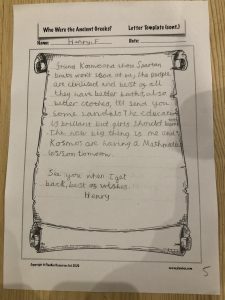 Who Were the Ancient Greeks?
Letter Template (cont.)
Name: Henry.F
Date:
Kosmos and show Spartan
at me, the people
are civilised and best of all
they have better baths, also
better clothes, I'll send you
some sandals The education
is brilliant but girls shouldn't
The new big thing is me and
Kosmos are having a Mathematics
lesson tomorrow.
See you when I get
back, best of wishes.
Henry
Copyright © PlanBee Resources Ltd 2020
www.planbee.com
5